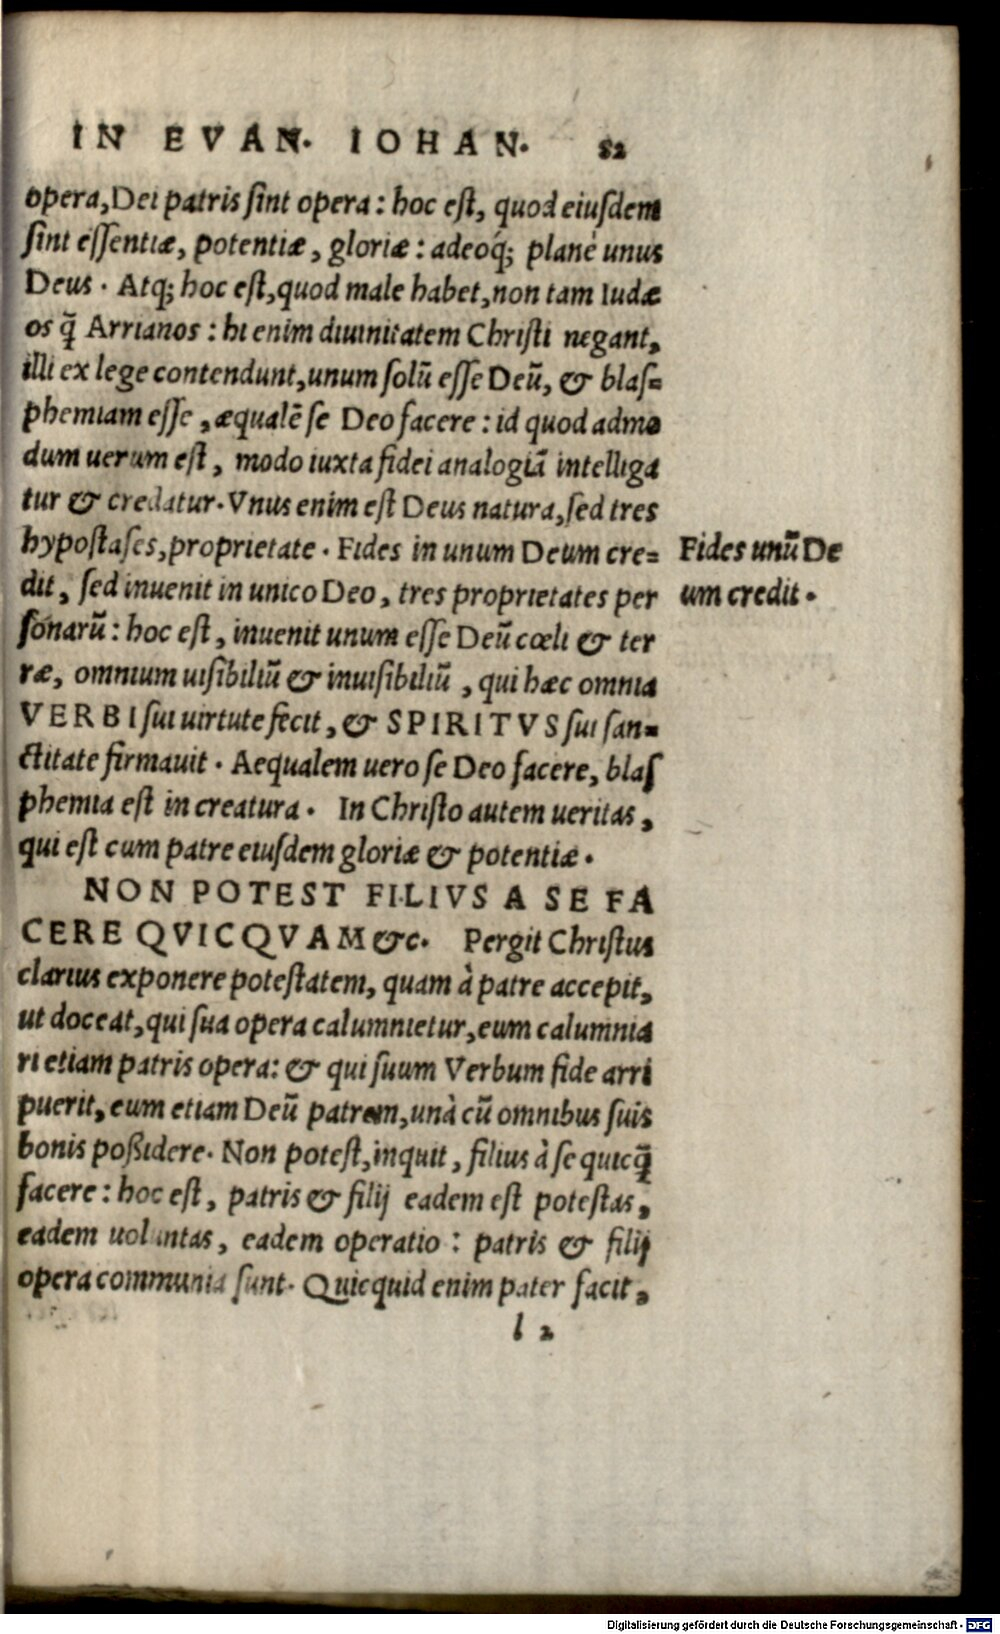 IN EVAN. IOHAN. 82
opera, Dei patris sint opera: hoc est, quod eiusdem
sint essentiæ, potentiæ, gloriæ: adeoq́; planè unus
Deus. Atq; hoc est, quod male habet, non tam Iudæ
os q̃ Arrianos: hi enim diuinitatem Christi negant,
illi ex lege contendunt, unum solũ esse Deũ, & blas=
phemiam esse, æqualẽ se Deo facere: id quod admo
dum uerum est, modo iuxta fidei analogiã intelliga
tur & credatur. Vnus enim est Deus natura, sed tres
hypostases, proprietate. Fides in unum Deum cre=
dit, sed inuenit in unico Deo, tres proprietates per
sonarũ: hoc est, inuenit unum esse Deũ cœli & ter
ræ, omnium uisibiliũ & inuisibiliũ, qui hæc omnia
VERBI sui uirtute fecit, & SPIRITVS sui san=
ctitate firmauit. Aequalem uero se Deo facere, blas
phemia est in creatura. In Christo autem ueritas,
qui est cum patre eiusdem gloriæ & potentiæ.
Fides unũ De
um credit.
NON POTEST FILIVS A SE FA
CERE QVICQVAM &c. Pergit Christus
clarius exponere potestatem, quam à patre accepit,
ut doceat, qui sua opera calumnietur, eum calumnia
ri etiam patris opera: & qui suum Verbum fide arri
puerit, eum etiam Deũ patrem, unà cũ omnibus suis
bonis poßidere. Non potest, inquit, filius à se quicq̃
facere: hoc est, patris & filij eadem est potestas,
eadem uoluntas, eadem operatio: patris & filij
opera communia sunt. Quicquid enim pater facit,
l 2
Digitalisierung gefördert durch die Deutsche Forschungsgemeinschaft - DFG